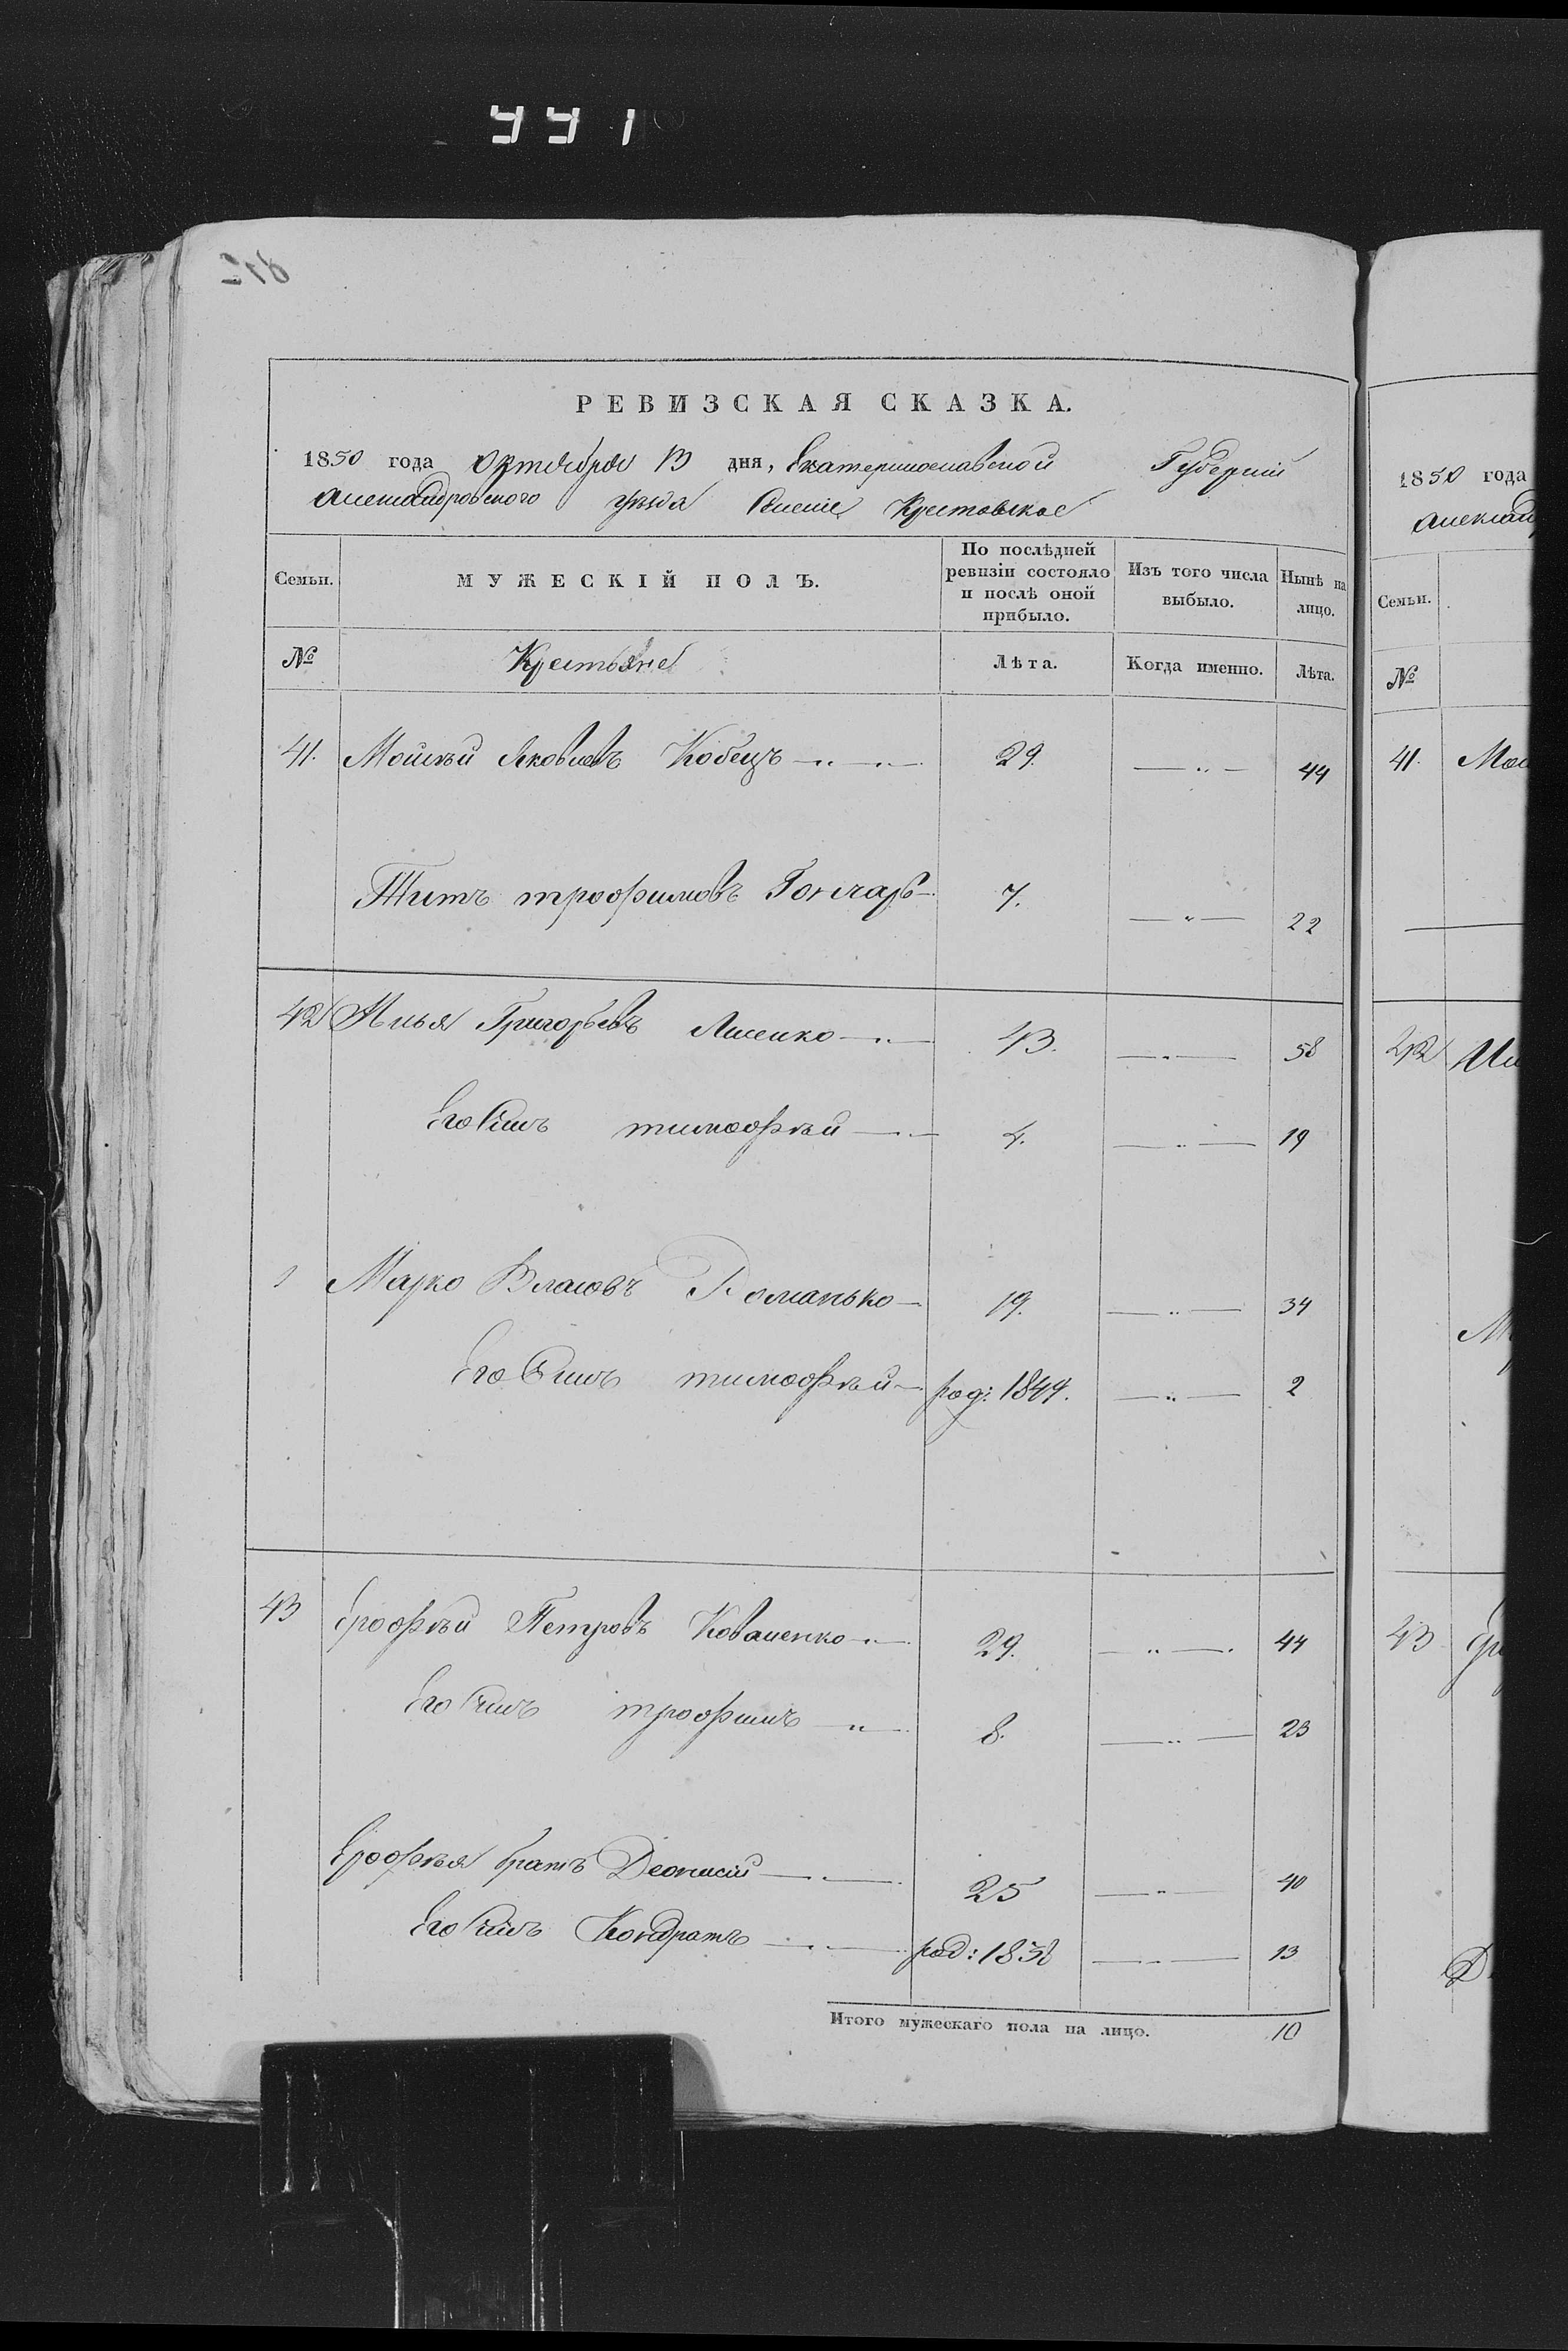 РЕВИЗСКАЯ СКАЗКА.
1850 года Октября 13 дня, Екатеринославской Губерніи
Александровского уѣзда Селеніе Крестовское
Семьи. МУЖЕСКІЙ ПОЛЪ. По послѣдней ревизіи состояло и послѣ оной прибыло. Изъ того числа выбыло. Нынѣ на лицо.
№ Крестьяне Лѣта. Когда именно. Лѣта.
41. Моисѣй Яковлевъ Кобецъ — „ — „ — 29. — „ — 44
Титъ трофимовъ Гончаръ — 7. — „ — 22
42 Илья Григорьевъ Лисенко — „ — 43. — „ — 58
Его Сынъ тимофѣй — „ — 4. — „ — 19
Марко Власовъ Романько — 19. — „ — 34
Его Сынъ тимофѣй — род: 1849. — „ — 2
43 Ерофѣй Петровъ Коваленко „ — 29. — „ — 44
Его Сынъ трофимъ „ — 8. — „ — 23
Ерофѣя братъ Деонисій — „ — 25 — „ — 40
Его Сынъ Кондратъ — „ — род: 1838 — „ — 13
Итого мужескаго пола на лицо. 10
1850 года
Александ
Семьи.
№
41. Мои
42 Ил
М
43 Ер
Д